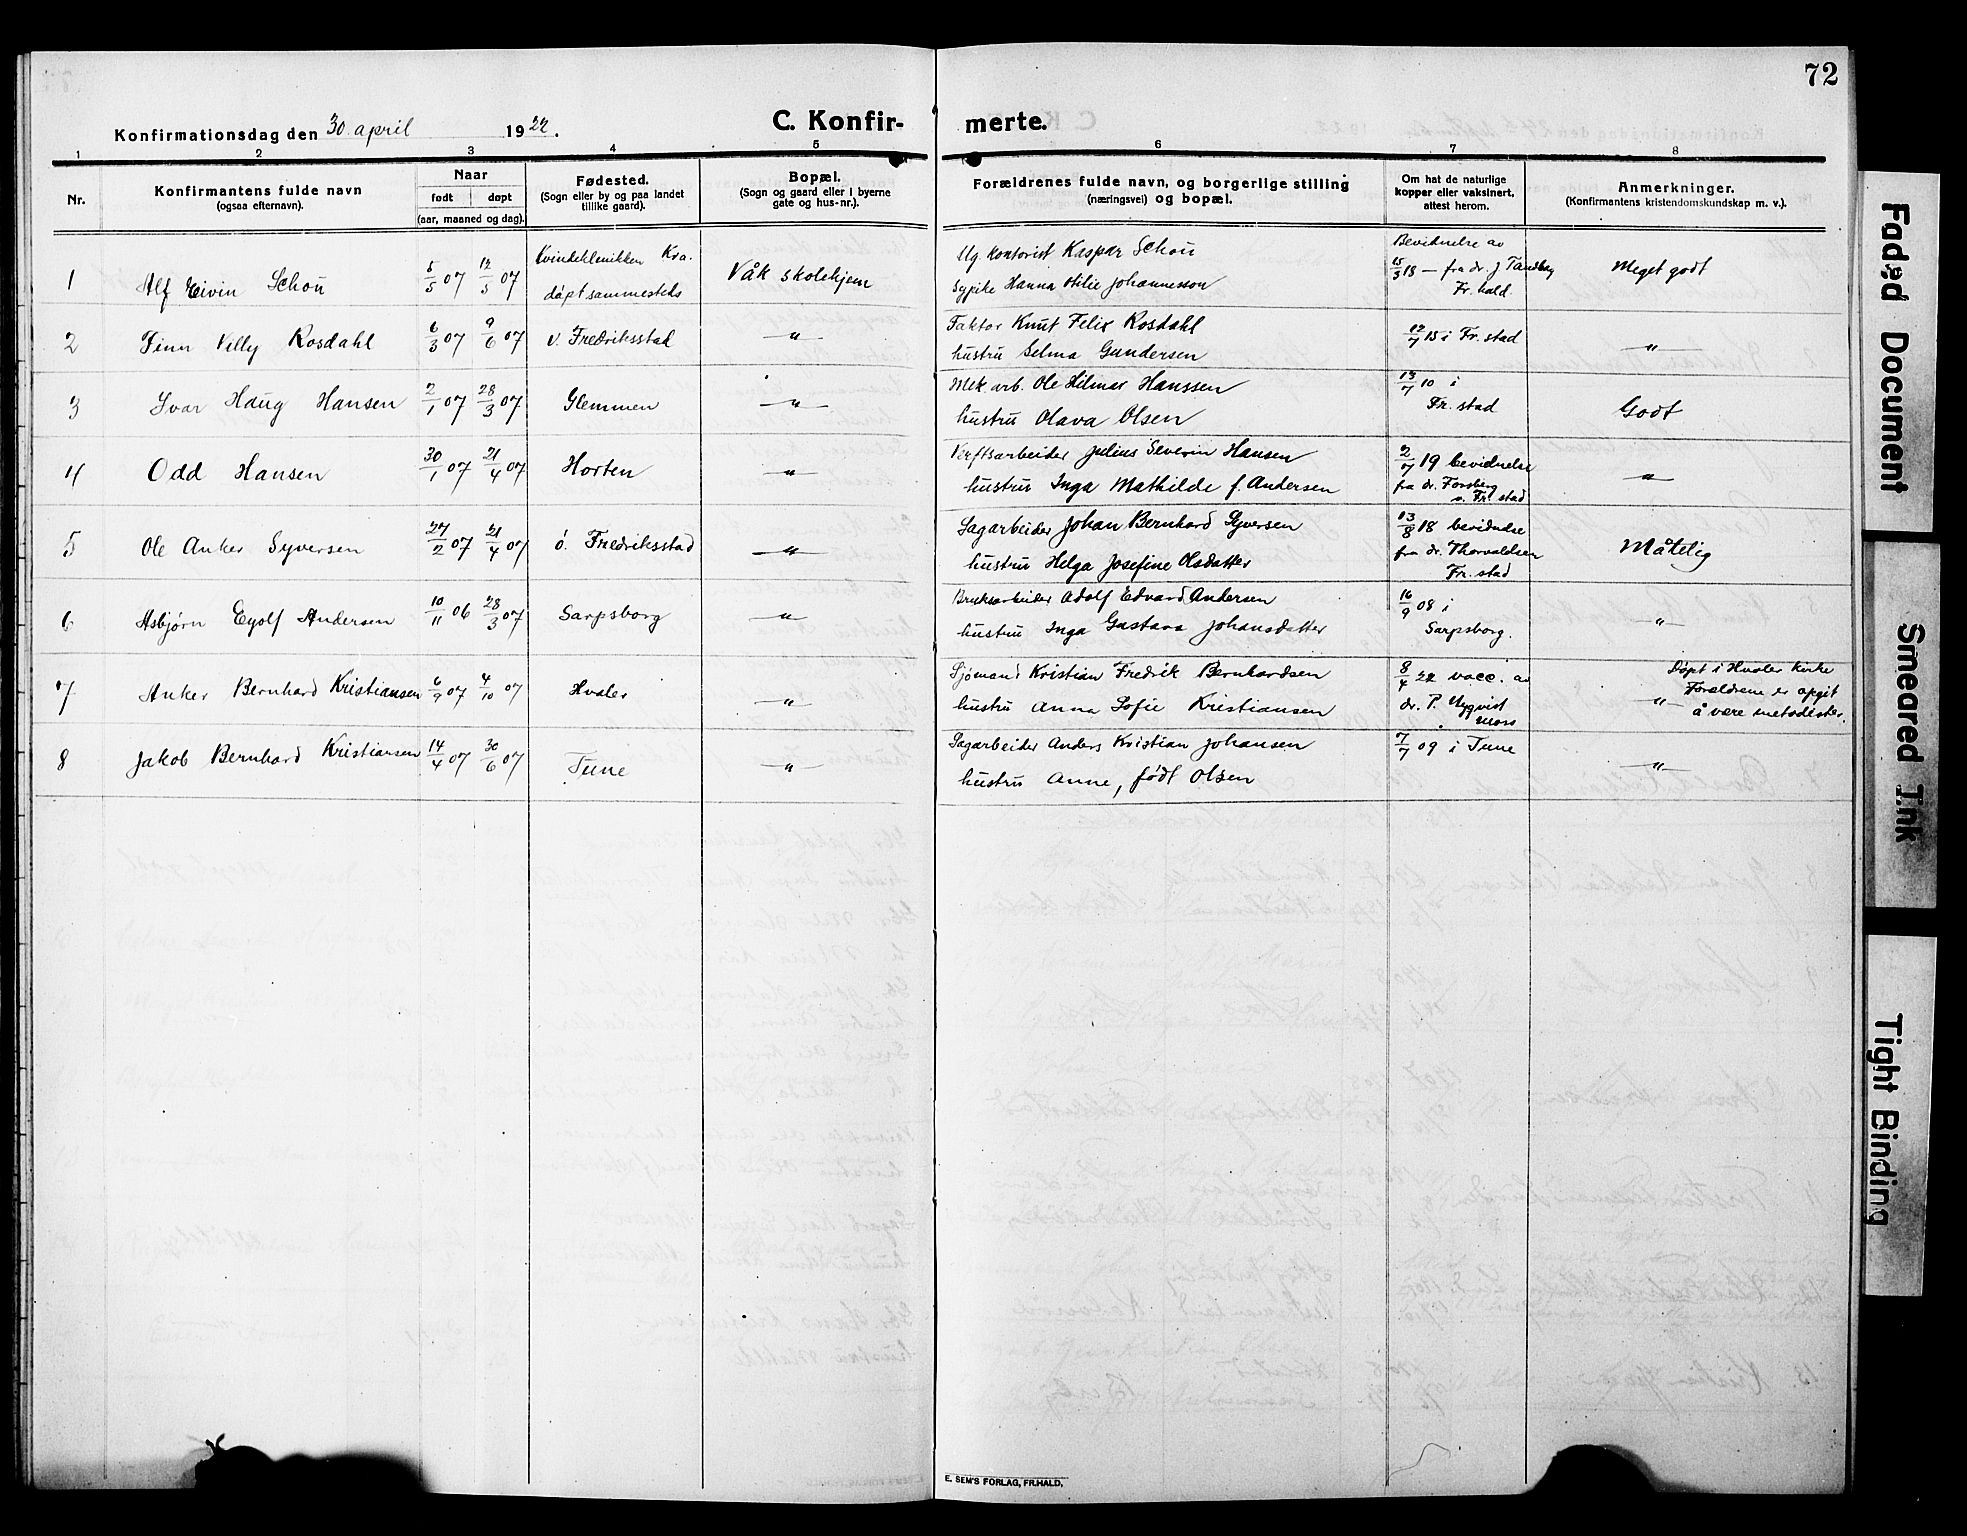 72
Konfirmationsdag den 30. april 1922.
C. Konfirmerte.
1 2 3 4 5 6 7 8
Nr.
Konfirmantens fulde navn
(ogsaa efternavn).
Naar
født døpt
(aar, maaned og dag).
Fødested.
(Sogn eller by og paa landet
tillike gaard).
Bopæl.
(Sogn og gaard eller i byerne
gate og hus-nr.).
Forældrenes fulde navn, og borgerlige stilling
(næringsvei) og bopæl.
Om hat de naturlige
kopper eller vaksinert,
attest herom.
Anmerkninger.
(Konfirmantens kristendomskundskap m. v.).
1 Alf Eivin Schou 5/5 07 12/5 07 Kvindeklenikken Kra.
døpt sammesteds
Våk skolehjem
Ug. kontorist Kaspar Schou
Sypike Hanna Otilie Johannesson
Bevidnelse av
15/3 18 — fra dr. J Tandberg
Fr.hald.
Meget godt
2 Finn Villy Rosdahl 6/3 07 9/6 07 v. Fredriksstad —"—
Faktor Knut Felix Rosdahl
hustru Selma Gundersen
12/7 15 i Fr.stad
—"—
3 Ivar Haug Hansen 2/1 07 28/3 07 Glemmen —"—
Mek arb. Ole Hilmar Hanssen
hustru Olava Olsen
13/7 10 i
Fr.stad
Godt
4 Odd Hansen 30/1 07 21/4 07 Horten —"—
Verftsarbeider Julius Severin Hansen
hustru Inga Mathilde f. Andersen
2/7 19 bevidnelse
fra dr. Forsberg
v. Fr.stad
—"—
5 Ole Anker Syversen 27/2 07 21/4 07 ö. Fredriksstad —"—
Sagarbeider Johan Bernhard Syversen
hustru Helga Josefine Olsdatter
13/8 18 bevidnelse
fra dr. Thorvaldsen
Fr.stad
Måtelig
6 Asbjørn Eyolf Andersen 10/11 06 28/3 07 Sarpsborg —"—
Bruksarbeider Adolf Edvard Andersen
hustru Inga Gustava Johansdatter
16/9 08 i
Sarpsborg.
—"—
7 Anker Bernhard Kristiansen 6/9 07 4/10 07 Hvaler —"—
Sjømand Kristian Fredrik Bernhardsen
hustru Anna Sofie Kristiansen
8/4 22 vacc. av
dr. P. Nyqvist
Moss
—"—
Døpt i Hvaler kirke
Forældrene er opgit
å være metodister.
8 Jakob Bernhard Kristiansen 14/4 07 30/6 07 Tune —"—
Sagarbeider Anders Kristian Johansen
hustru Anne, født Olsen
7/7 09 i Tune
—"—
E. SEM'S FORLAG, FR.HALD.
Faded Document
Smeared Ink
Tight Binding